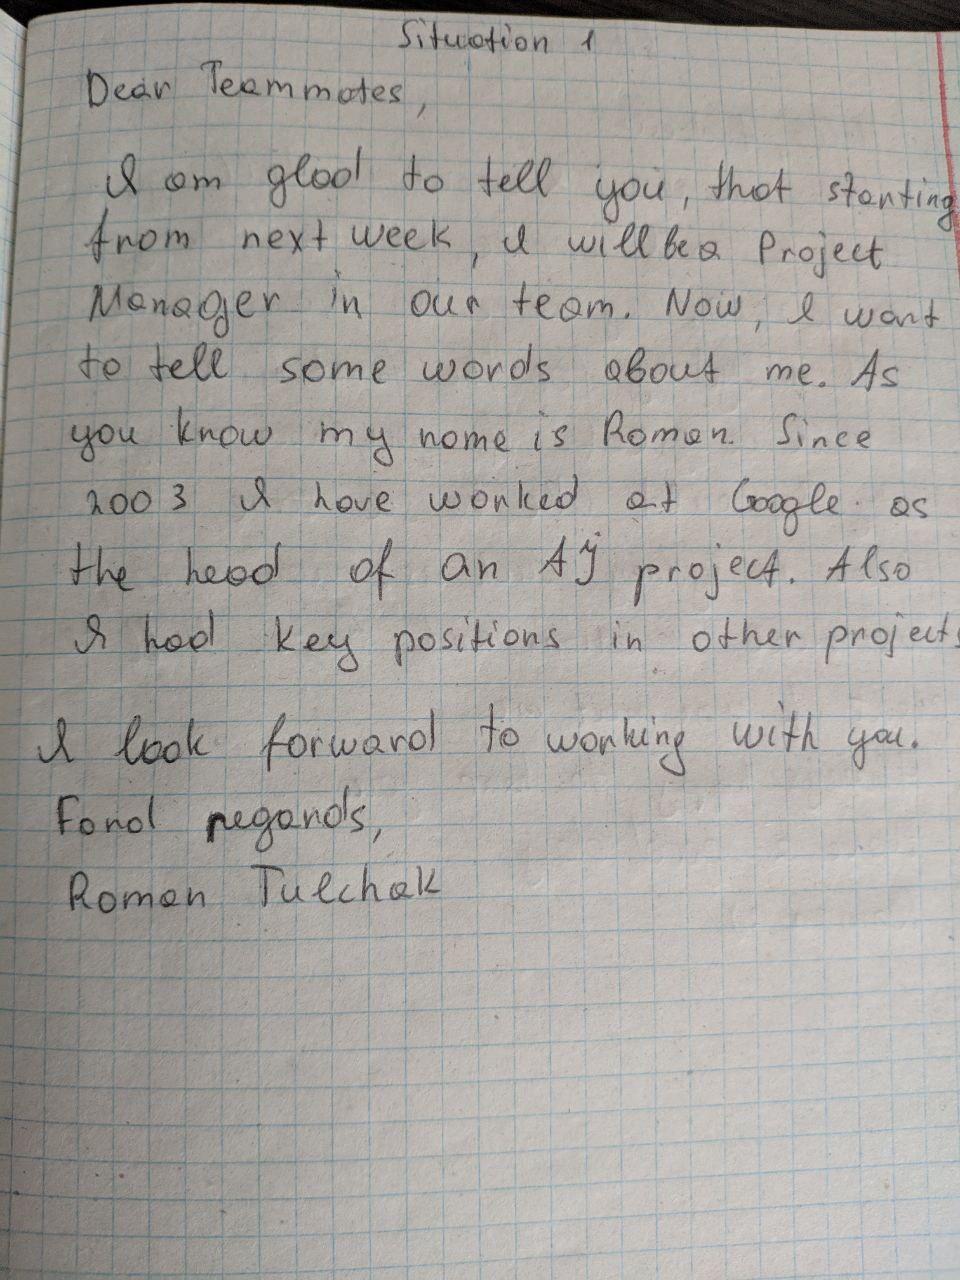 Situation 1
Dear Teammates,
I am glad to tell you, that starting
from next week, I will be a Project
Manager in our team. Now, I want
to tell some words about me. As
you know my name is Roman. Since
2003 I have worked at Google as
the head of an AI project. Also
I had key positions in other projects
I look forward to working with you.
Fond regards,
Roman Tulchak